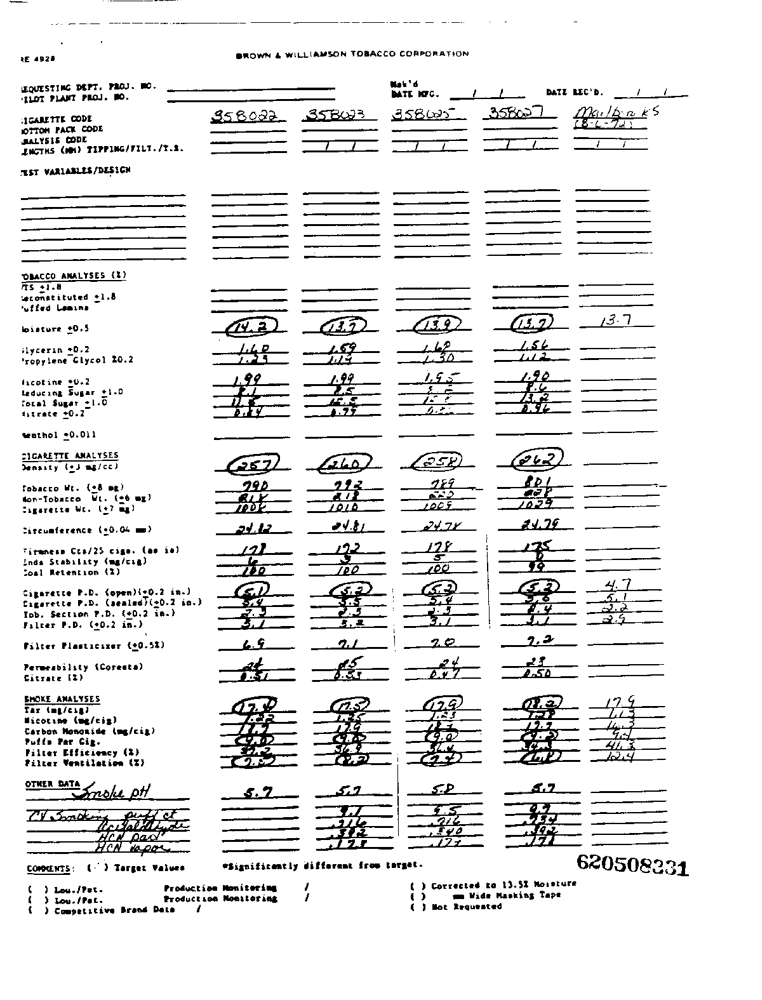 RE 4928
BROWN & WILLIAMSON TOBACCO CORPORATION
EQUESTING DEPT. PROJ. NO.
ILOT PLANT PROJ. NO.
Mak'd
DATE MFG. / /
DATE REC'D. / /
IGARETTE CODE 358022 358023 358025 358027
OTTOM PACK CODE
NALYSIS CODE
ENGTHS (MM) TIPPING/FILT./T.S. / / / / / / / /
EST VARIABLES/DESIGN
OBACCO ANALYSES (%)
TS +1.8
econstituted +1.8
uffed Lamina
oisture +0.5 14.2 13.7 13.9 13.7 13.7
lycerin +0.2 1.60 1.59 1.68 1.56
ropylene Glycol %0.2 1.30 1.12
icotine +0.2 1.99 1.99 1.95 1.90
educing Sugar +1.0 8.1 8.5 8.6
otal Sugar +1.0 13.2
itrate +0.2 0.84 0.79 0.96
enthol +0.011
IGARETTE ANALYSES
ensity (+3 mg/cc) 257 260 258 262
obacco Wt. (+8 mg) 790 792 789 801
on-Tobacco Wt. (+6 mg) 218 218 220 228
igarette Wt. (+7 mg) 1008 1010 1009 1029
ircumference (+0.04 mm) 24.82 24.81 24.78 24.79
irmness Cts/25 cigs. (as is) 178 172 178 175
nds Stability (mg/cig) 6 3 5
oal Retention (%) 100 100 100 99
Cigarette P.D. (open)(+0.2 in.) 5.1 5.2 5.2 5.3 4.7
Cigarette P.D. (sealed)(+0.2 in.) 5.4 5.5 5.4 5.6 5.1
Tob. Section P.D. (+0.2 in.) 2.3 2.3 2.3 2.4 2.2
Filter P.D. (+0.2 in.) 3.1 3.2 3.1 3.1 2.9
Filter Plasticizer (+0.5%) 6.9 7.1 7.0 7.2
Permeability (Coresta) 24 25 24 23
Citrate (%) 0.51 0.53 0.47 0.50
SMOKE ANALYSES
Tar (mg/cig) 17.4 17.5 17.9 18.2 17.9
Nicotine (mg/cig) 1.22 1.25 1.23 1.28 1.13
Carbon Monoxide (mg/cig) 17.9 17.7
Puffs Per Cig. 9.0 9.0 9.2
Filter Efficiency (%) 37.2 36.9 36.4 41.3
Filter Ventilation (%) 7.5 8.2 7.4 6.8 12.4
OTHER DATA
Smoke pH 5.7 5.7 5.8 5.7
CV Smoking puff ct 9.1 9.5 9.7
Acetaldehyde .716 .716 .734
HCN part .392 .340 .392
HCN vapor .173 .177 .171
COMMENTS: ( ) Target Values *Significantly different from target.
620508331
( ) Lou./Pet. Production Monitoring / ( ) Corrected to 13.5% Moisture
( ) Lou./Pet. Production Monitoring / ( ) mm Wide Masking Tape
( ) Competitive Brand Data / ( ) Not Requested